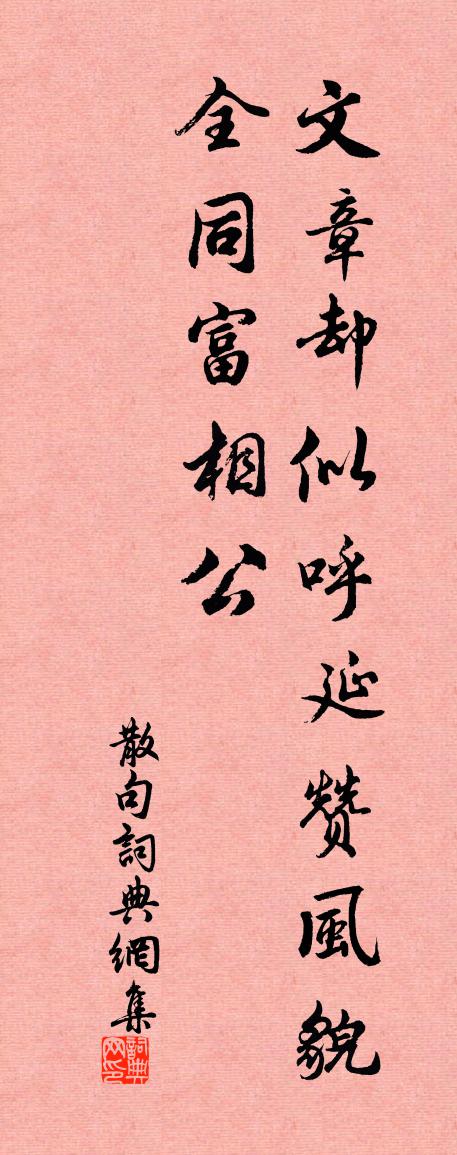 文章却似呼延赞風貌
全同富相公
散句詞典網集
詞典网印